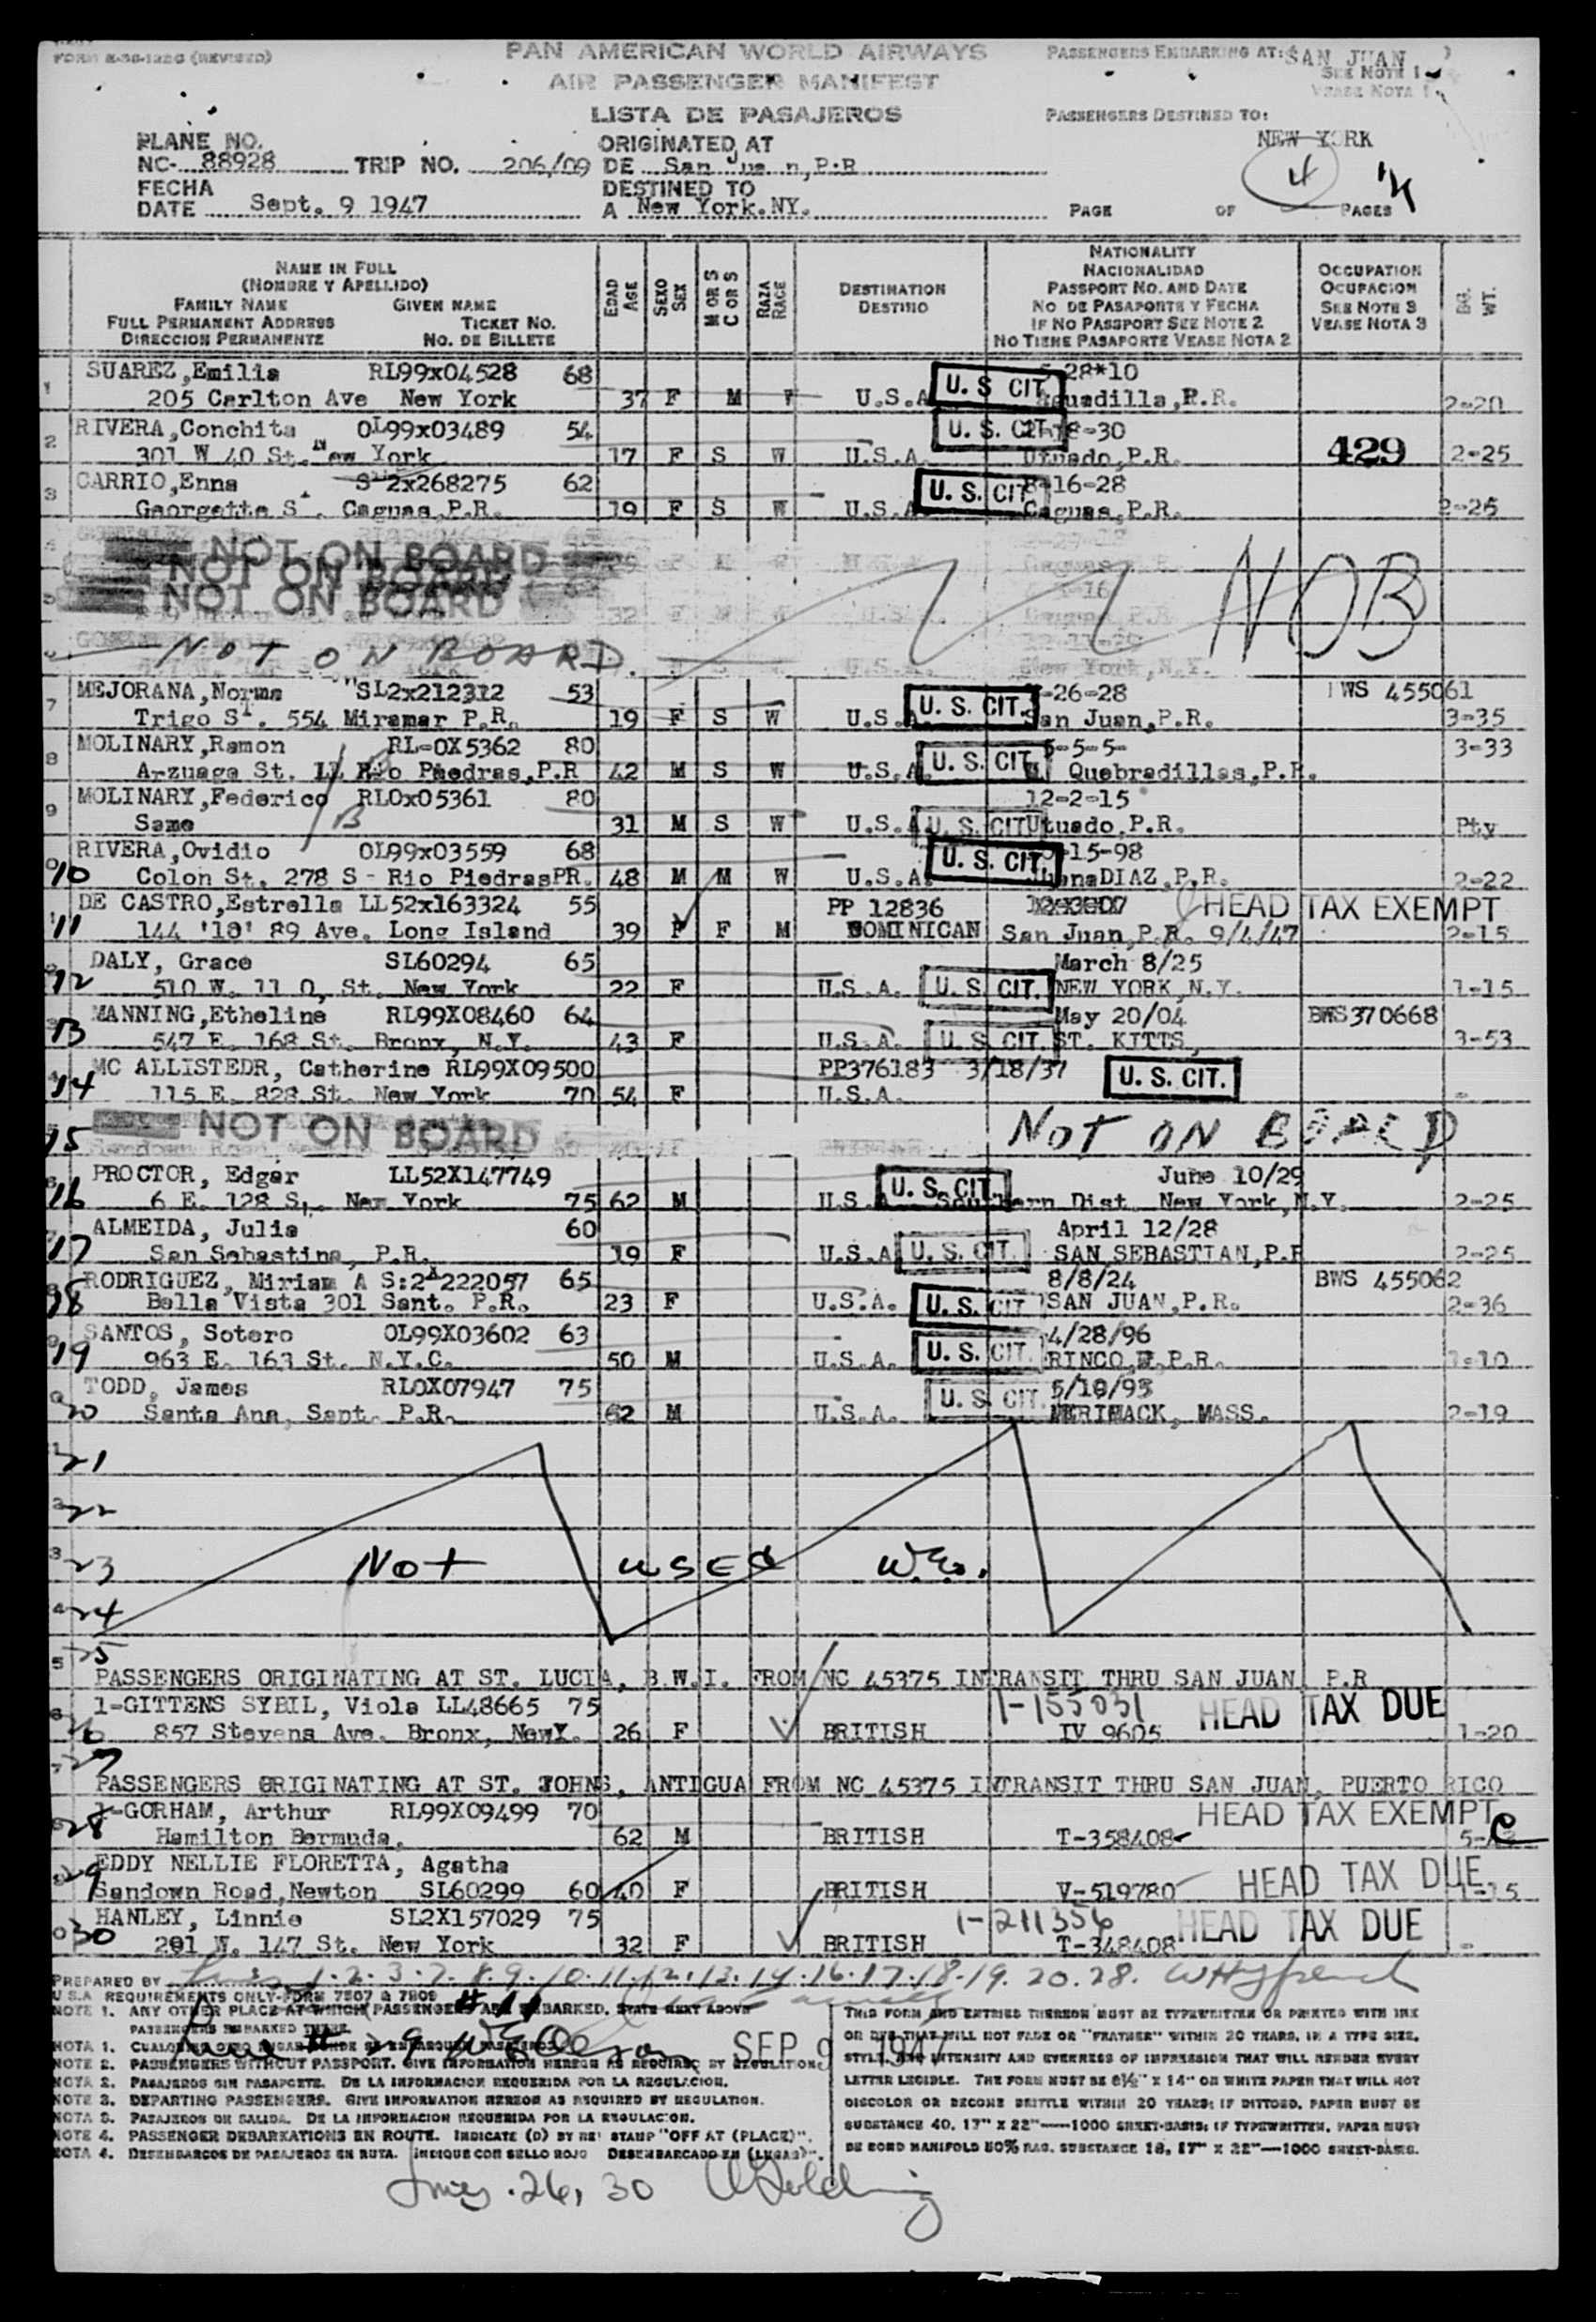 FORM E-36-122G (REVISED)
PAN AMERICAN WORLD AIRWAYS
AIR PASSENGER MANIFEST
LISTA DE PASAJEROS
PASSENGERS EMBARKING AT: SAN JUAN
SEE NOTE 1
VEASE NOTA 1
PASSENGERS DESTINED TO:
NEW YORK
PLANE NO.
NC- 88928 TRIP NO. 206/09
ORIGINATED AT
DE San Jua n,P.R
FECHA
DATE Sept. 9 1947
DESTINED TO
A New York.NY.
4
PAGE OF PAGES
NAME IN FULL
(NOMBRE Y APELLIDO)
FAMILY NAME GIVEN NAME
FULL PERMANENT ADDRESS TICKET NO.
DIRECCION PERMANENTE NO. DE BILLETE
EDAD AGE
SEXO SEX
M OR S C OR S
RAZA RACE
DESTINATION
DESTINO
NATIONALITY
NACIONALIDAD
PASSPORT NO. AND DATE
NO DE PASAPORTE Y FECHA
IF NO PASSPORT SEE NOTE 2
NO TIENE PASAPORTE VEASE NOTA 2
OCCUPATION
OCUPACION
SEE NOTE 3
VEASE NOTA 3
WT.
1 SUAREZ,Emilia RL99x04528 68 28*10
205 Carlton Ave New York 37 F M W U.S.A U. S CIT. P.R. 2-20
2 RIVERA,Conchita OL99x03489 54 U. S. CIT. 18-30
301 W 40 St. New York 17 F S W U.S.A. Utuado,P.R. 429 2-25
3 CARRIO,Enna S 2x268275 62 U. S. CIT. 8-16-28
Georgette St. Caguas,P.R. 19 F S W U.S.A. Caguas,P.R. 2-25
NOT ON BOARD
NOT ON BOARD
NOT ON BOARD
NOB
NOT ON BOARD
7 MEJORANA,Norma SL2x212312 53 U. S. CIT. -26-28 BWS 455061
Trigo St. 554 Miramar P.R. 19 F S W U.S.A. San Juan,P.R. 3-35
8 MOLINARY,Ramon RL-0X5362 80 U. S. CIT. 5-5- 3-33
Arzuaga St. Rio Piedras,P.R 42 M S W U.S.A. Quebradillas,P.R.
9 MOLINARY,Federico RL0x05361 80 12-2-15
Same 31 M S W U.S.A U. S. CIT Utuado,P.R. Pty
10 RIVERA,Ovidio OL99x03559 68 U. S. CIT. -15-98
Colon St. 278 S - Rio PiedrasPR. 48 M M W U.S.A. DIAZ,P.R. 2-22
11 DE CASTRO,Estrella LL52x163324 55 PP 12836 HEAD TAX EXEMPT
144 '18' 89 Ave. Long Island 39 F F M DOMINICAN San Juan,P.R. 9/4/47 2-15
12 DALY, Grace SL60294 65 March 8/25
510 W. 11 0, St. New York 22 F U.S.A. U. S. CIT. NEW YORK,N.Y. 1-15
13 MANNING,Etheline RL99X08460 64 May 20/04 BWS370668
547 E. 168 St. Bronx, N.Y. 43 F U.S.A. U. S. CIT. ST. KITTS, 3-53
14 MC ALLISTEDR, Catherine RL99X09500 PP376183 3/18/37 U. S. CIT.
115 E. 828 St. New York 70 54 F U.S.A.
15 NOT ON BOARD NOT ON BOARD
16 PROCTOR, Edgar LL52X147749 U. S. CIT. June 10/29
6 E. 128 S,. New York 75 62 M U.S.A. Southern Dist. New York,N.Y. 2-25
17 ALMEIDA, Julia 60 April 12/28
San Sebastina, P.R. 19 F U.S.A U. S. CIT. SAN SEBASTIAN,P.R 2-25
18 RODRIGUEZ, Miriam A S:2X222057 65 8/8/24 BWS 455062
Bella Vista 301 Sant. P.R. 23 F U.S.A. U. S. CIT. SAN JUAN,P.R. 2-36
19 SANTOS, Sotero OL99X03602 63 4/28/96
963 E. 163 St. N.Y.C. 50 M U.S.A. U. S. CIT. RINCO,P.R. 1-10
20 TODD, James RL0X07947 75 5/18/93
Santa Ana, Sant. P.R. 62 M U.S.A. U. S. CIT. MERIMACK, MASS. 2-19
21
22
23 Not used
24
25
PASSENGERS ORIGINATING AT ST. LUCIA, B.W.I. FROM NC 45375 INTRANSIT THRU SAN JUAN P.R
1-GITTENS SYBIL, Viola LL48665 75 1-155031 HEAD TAX DUE
26 857 Stevens Ave. Bronx, NewY. 26 F BRITISH IV 9605 1-20
27
PASSENGERS ORIGINATING AT ST. JOHNS, ANTIGUA FROM NC 45375 INTRANSIT THRU SAN JUAN, PUERTO RICO
28 1-GORHAM, Arthur RL99X09499 70 HEAD TAX EXEMPT
Hamilton Bermuda. 62 M BRITISH T-358408
29 EDDY NELLIE FLORETTA, Agatha HEAD TAX DUE
Sandown Road,Newton SL60299 60 40 F BRITISH V-519780 1-15
30 HANLEY, Linnie SL2X157029 75 1-211356 HEAD TAX DUE
201 W. 147 St. New York 32 F BRITISH T-348408
PREPARED BY 1.2.3.7.8.9.10.11.12.13.14.16.17.18.19.20.28.
U.S.A REQUIREMENTS ONLY-FORM 7507 & 7509
NOTE 1. ANY OTHER PLACE AT WHICH PASSENGERS ARE EMBARKED. STATE NEXT ABOVE
PASSENGERS EMBARKED THERE.
# 11
# 29
SEP 9 1947
NOTE 2. PASSENGERS WITHOUT PASSPORT. GIVE INFORMATION HEREON AS REQUIRED BY REGULATION
NOTA 2. PASAJEROS SIN PASAPORTE. DE LA INFORMACION REQUERIDA POR LA REGULACION.
NOTE 3. DEPARTING PASSENGERS. GIVE INFORMATION HEREON AS REQUIRED BY REGULATION.
NOTA 3. PASAJEROS DE SALIDA. DE LA INFORMACION REQUERIDA POR LA REGULACION.
NOTE 4. PASSENGER DEBARKATIONS EN ROUTE. INDICATE (D) BY RE' STAMP "OFF AT (PLACE)".
NOTA 4. DESEMBARCOS DE PASAJEROS EN RUTA. INDIQUE CON SELLO ROJO DESEMBARCADO EN (LUGAR)".
THIS FORM AND ENTRIES THEREON MUST BE TYPEWRITTEN OR PRINTED WITH INK
OR DYE THAT WILL NOT FADE OR "FEATHER" WITHIN 20 YEARS, IN A TYPE SIZE,
STYLE AND INTENSITY AND EVENNESS OF IMPRESSION THAT WILL RENDER EVERY
LETTER LEGIBLE. THE FORM MUST BE 8½" X 14" ON WHITE PAPER THAT WILL NOT
DISCOLOR OR BECOME BRITTLE WITHIN 20 YEARS; IF DITTOED, PAPER MUST BE
SUBSTANCE 40, 17" X 22"—1000 SHEET-BASIS; IF TYPEWRITTEN, PAPER MUST
BE BOND MANIFOLD 50% RAG, SUBSTANCE 18, 17" X 22"—1000 SHEET-BASIS.
26, 30